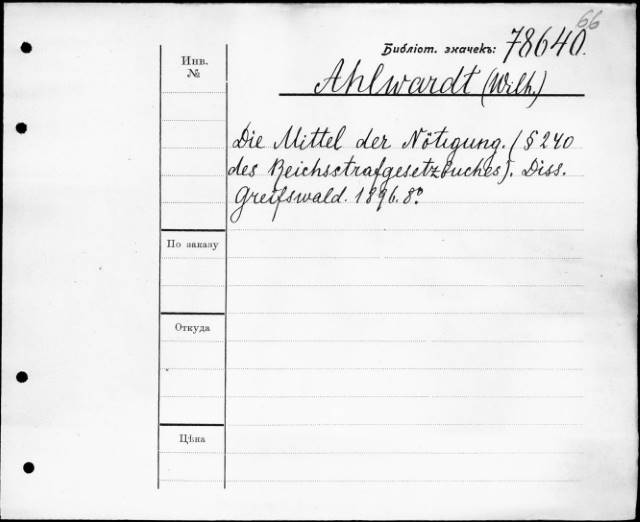 66
Библіот. значекъ: 78640.
Инв.
№
Ahlwardt (Wilh.)
Die Mittel der Nötigung. (§ 240
des Reichsstrafgesetzbuches). Diss.
Greifswald. 1896. 8º.
По заказу
Откуда
Цѣна